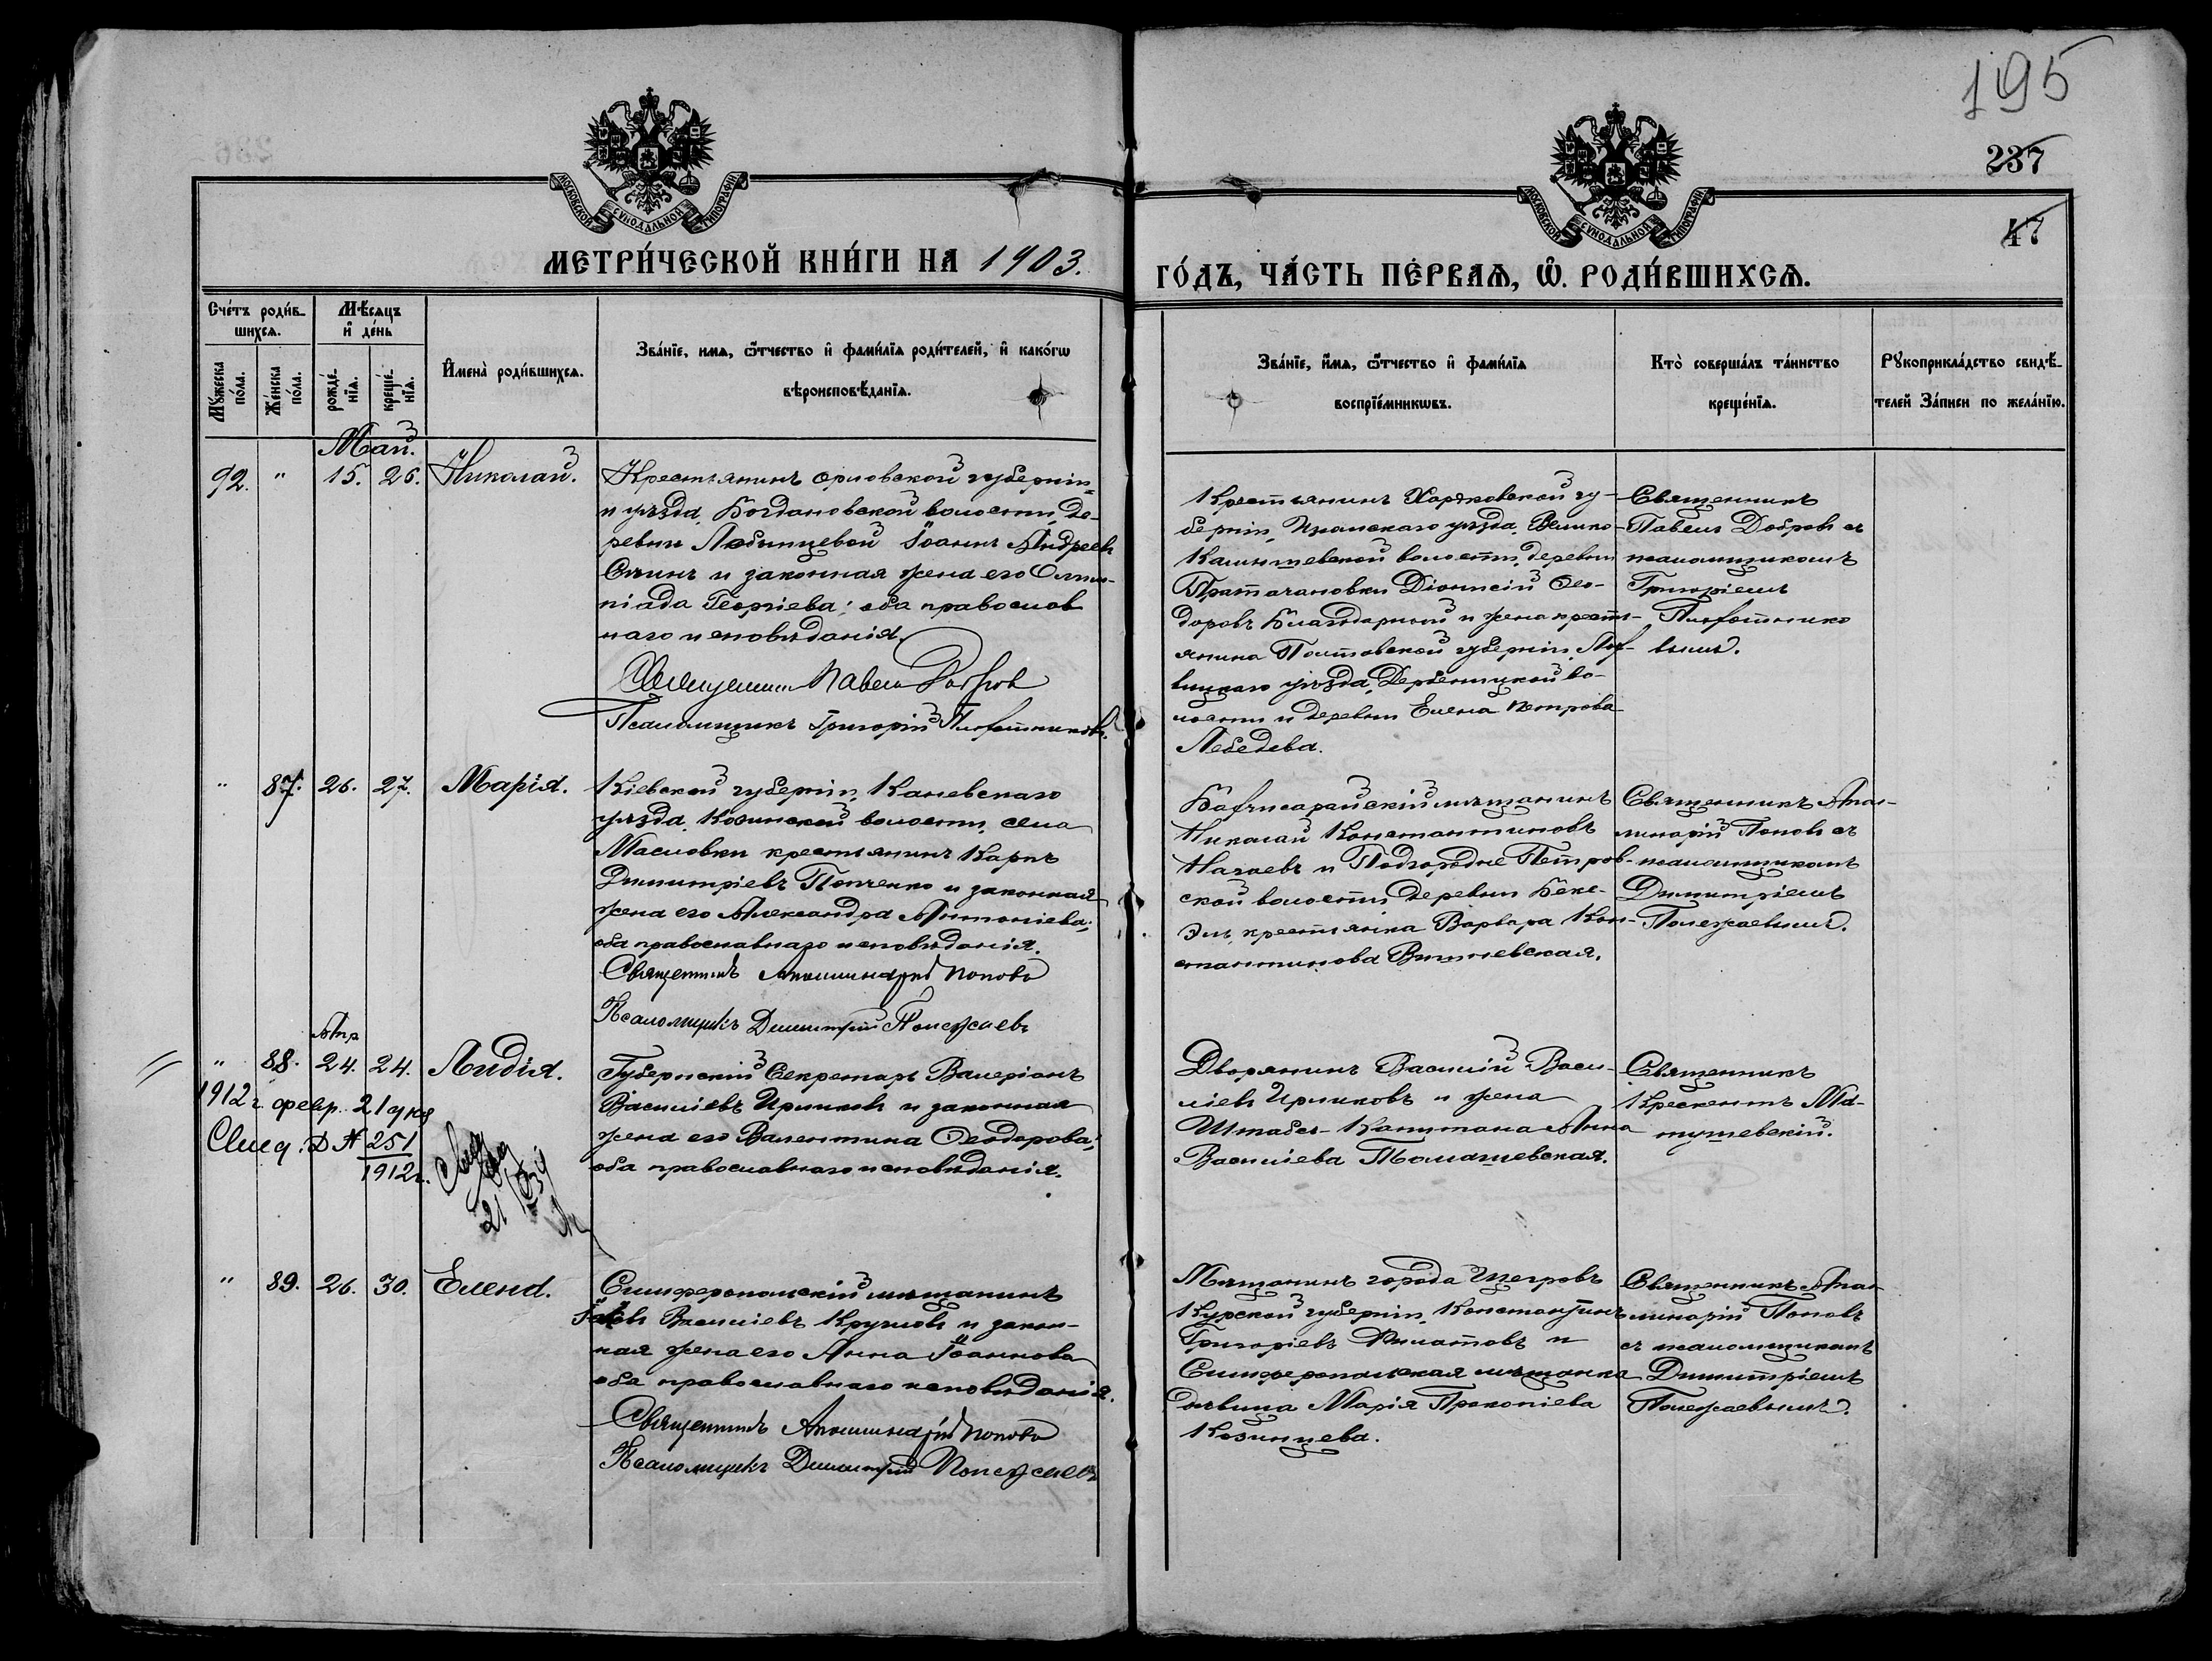 195
237
47
МОСКОВСКОЙ СѴНОДАЛЬНОЙ ТИПОГРАФІИ
МОСКОВСКОЙ СѴНОДАЛЬНОЙ ТИПОГРАФІИ
МЕТРИ́ЧЕСКОЙ КНИ́ГИ НА 1903.
ГО́ДЪ, ЧА́СТЬ ПЕ́РВАѦ, Ѿ. РОДИ́ВШИХСѦ.
Сче́тъ роди́в-
шихсѧ.
Мѣ́сяцъ
и҆ де́нь
Мꙋ́жеска
по́ла.
Же́нска
по́ла.
рожде́-
нїѧ.
креще́-
нїѧ.
И҆мена̀ роди́вшихсѧ.
Зва́нїе, имѧ, ѻ҆́тчество и҆ фами́лїѧ роди́телей, и҆ како́гѡ
вѣроисповѣ́данїѧ.
Зва́нїе, и҆́мѧ, ѻ҆́тчество и҆ фами́лїѧ
воспрїе́мникѡвъ.
Кто̀ соверша́лъ та́инство
креще́нїѧ.
Рꙋкоприкла́дство свидѣ́-
телей За́писи по жела́нїю.
Май.
92. " 15. 26. Николай.
Крестьянинъ Орловской губерніи
и уѣзда, Богдановской волости, де-
ревни Любинцевой Іоаннъ Андреевъ
и законная жена его Олим-
піада Георгіева; оба православ
наго исповѣданія.
Священникъ Павелъ Добровъ
Псаломщикъ Григорій Плохотниковъ.
Крестьянинъ Харьковской гу-
берніи, Изюмскаго уѣзда, Велико-
Камышевской волости, деревни
Діонисій Ѳео-
доровъ Благодарный и жена крест-
янина Полтавской губерніи, Лох-
вицкаго уѣзда, во-
лости и деревни Елена Петрова
Лебедева.
Священникъ
Павелъ Добровъ съ
псаломщикомъ
Григоріемъ
Плохотнико
вымъ.
" 87. 26. 27. Марія.
Кіевской губерніи, Каневскаго
уѣзда, Козинской волости, села
Масловки крестьянинъ Карпъ
Димитріевъ Попченко и законная
жена его Александра Антоніева;
оба православнаго исповѣданія.
Священникъ Аполлинарій Поповъ
Псаломщикъ Димитрій Полежаевъ
Бахчисарайскій мѣщанинъ
Николай Константиновъ
Нагаевъ и Подгородне Петров-
ской волости, деревни Беке-
Эль, крестьянка Варвара Кон-
стантинова Вишневская.
Священникъ Апол-
линарій Поповъ съ
псаломщикомъ
Димитріемъ
Полежаевымъ.
Апр
" 88. 24. 24. Лидія.
1912 г. февр. 21 дня
Свид. Д № 251
1912 г.
Губернскій Секретарь Валеріанъ
Василіевъ Ирликовъ и законная
жена его Валентина Ѳеодорова;
оба православнаго исповѣданія.
Дворянинъ Василій Васи-
ліевъ Ирликовъ и жена
Штабсъ-Капитана Анна
Василіева Томашевская.
Священникъ
Крескентъ Ма-
тушевскій.
" 89. 26. 30. Елена.
Симферопольскій мѣщанинъ
Василіевъ Кругловъ и закон-
ная жена его Анна Іоаннова
оба православнаго исповѣданія.
Священникъ Аполлинарій Поповъ
Псаломщикъ Димитрій Полежаевъ
Мѣщанинъ города Щегровъ
Курской губерніи, Константинъ
Григоріевъ Филатовъ и
Симферопольская мѣщанка
дѣвица Марія Прокопіева
Козинцева.
Священникъ Апол
линарій Поповъ
съ псаломщикомъ
Димитріемъ
Полежаевымъ.